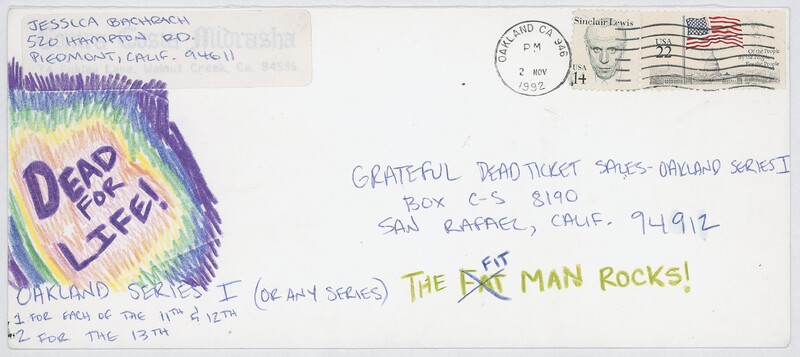 JESSICA BACHRACH
520 HAMPTON RD.
PIEDMONT, CALIF. 94611
Midrasha
Lane, Walnut Creek, Ca. 94596
OAKLAND CA 946
PM
2 NOV
1992
Sinclair Lewis
USA
14
USA
22
Of the People
By the People
For the People
DEAD
FOR
LIFE!
GRATEFUL DEAD TICKET SALES-OAKLAND SERIES I
BOX C-S 8190
SAN RAFAEL, CALIF. 94912
OAKLAND SERIES I (OR ANY SERIES)
1 FOR EACH OF THE 11TH & 12TH
2 FOR THE 13TH
FIT
THE FAT MAN ROCKS!